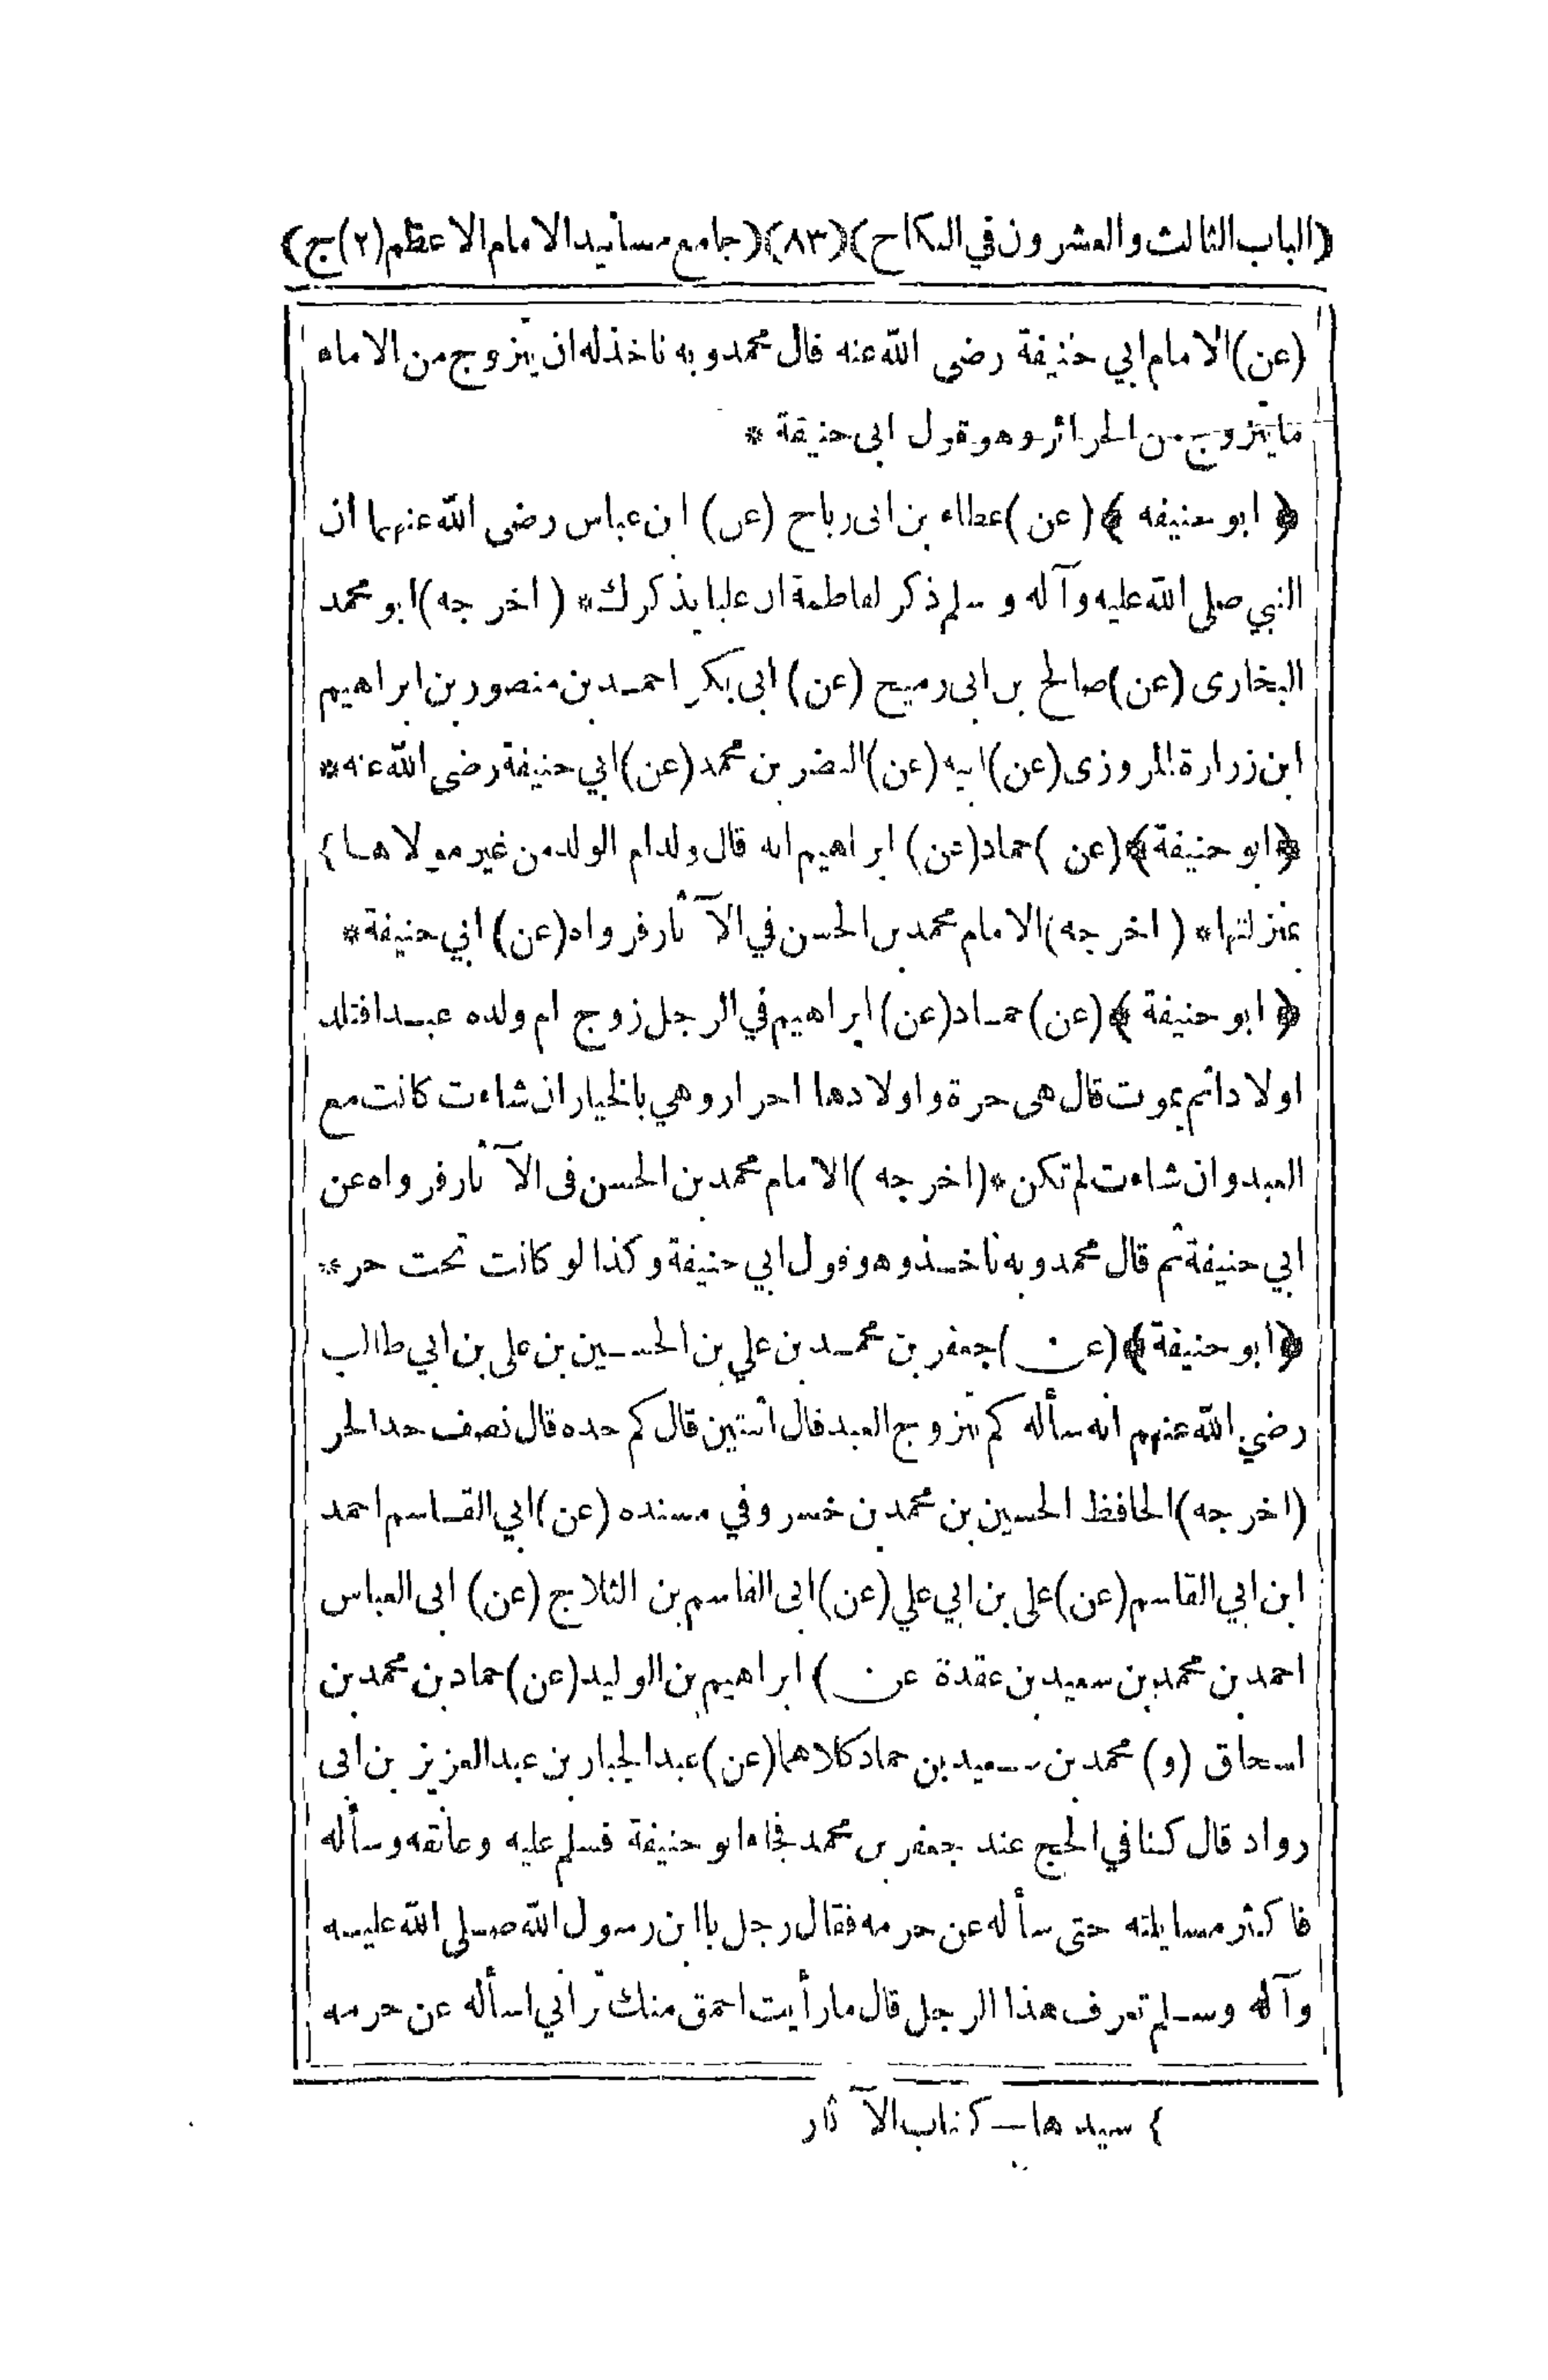 (الباب الثالث والعشرون في النكاح) (٨٣) (جامع مسانيد الامام الاعظم (٢) ج)
(عن) الامام ابي حنيفة رضى الله عنه قال محمد وبه ناخذ له ان يتزوج من الاماء
ما يتزوج من الحرائر وهو قول ابى حنيفة *
﴿ ابو حنيفه ﴾ (عن) عطاء بن ابى رباح (عن) ابن عباس رضى الله عنهما ان
النبي صلى الله عليه وآله وسلم ذكر لفاطمة ان عليا يذكرك * (اخرجه) ابو محمد
البخارى (عن) صالح بن ابى رميح (عن) ابى بكر احمد بن منصور بن ابراهيم
ابن زرارة المروزى (عن) ابيه (عن) النضر بن محمد (عن) ابي حنيفة رضى الله عنه *
﴿ابو حنيفة﴾ (عن) حماد (عن) ابراهيم انه قال ولد ام الولد من غير مولاها }
بمنزلتها * (اخرجه) الامام محمد بن الحسن في الآثار فرواه (عن) ابي حنيفة *
﴿ ابو حنيفة ﴾ (عن) حماد (عن) ابراهيم في الرجل زوج ام ولده عبدا فتلد
اولادا ثم يموت قال هى حرة واولادها احرار وهي بالخيار ان شاءت كانت مع
العبد وان شاءت لم تكن * (اخرجه) الامام محمد بن الحسن فى الآثار فرواه عن
ابي حنيفة ثم قال محمد وبه ناخذ وهو قول ابي حنيفة وكذا لو كانت تحت حر *
﴿ابو حنيفة﴾ (عن) جعفر بن محمد بن علي بن الحسين بن على بن ابي طالب
رضي الله عنهم انه سأله كم يتزوج العبد قال اثنتين قال كم حده قال نصف حد الحر
(اخرجه) الحافظ الحسين بن محمد بن خسرو في مسنده (عن) ابي القاسم احمد
ابن ابي القاسم (عن) على بن ابي علي (عن) ابى القاسم بن الثلاج (عن) ابى العباس
احمد بن محمد بن سعيد بن عقدة عن) ابراهيم بن الوليد (عن) حماد بن محمد بن
اسحاق (و) محمد بن سعيد بن حماد كلاهما (عن) عبد الجبار بن عبد العزيز بن ابى
رواد قال كنا في الحج عند جعفر بن محمد فجاء ابو حنيفة فسلم عليه وعانقه وسأله
فاكثر مسايلته حتى سأله عن حرمه فقال رجل يا ابن رسول الله صلى الله عليه
وآله وسلم تعرف هذا الرجل قال ما رأيت احمق منك تراني اسأله عن حرمه
} سيدها — كتاب الآثار